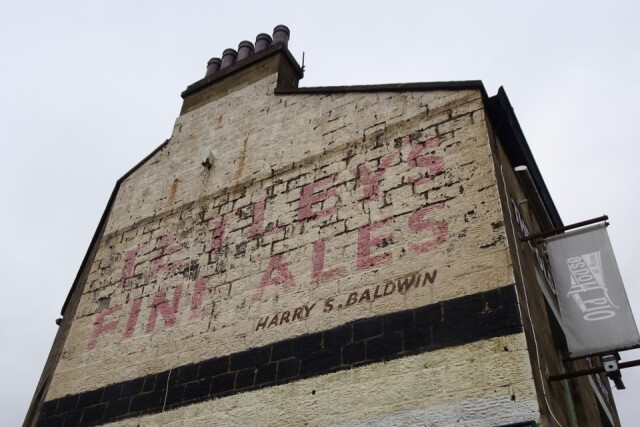 TETLEY'S
FINE ALES
HARRY S. BALDWIN
Old Horse